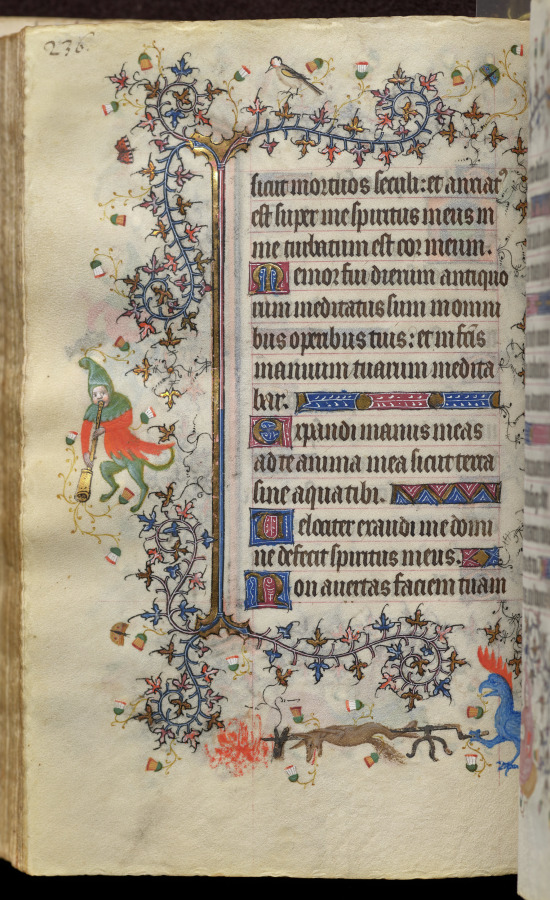 236.
sicut mortuos seculi: et anxiat'
est super me spiritus meus in
me turbatum est cor meum.
Memor fui dierum antiquo
rum meditatus sum in omni
bus operibus tuis: et in fc̄is
manuum tuarum medita
bar.
Expandi manus meas
ad te anima mea sicut terra
sine aqua tibi.
Uelociter exaudi me domi
ne defecit spiritus meus.
Non auertas faciem tuam